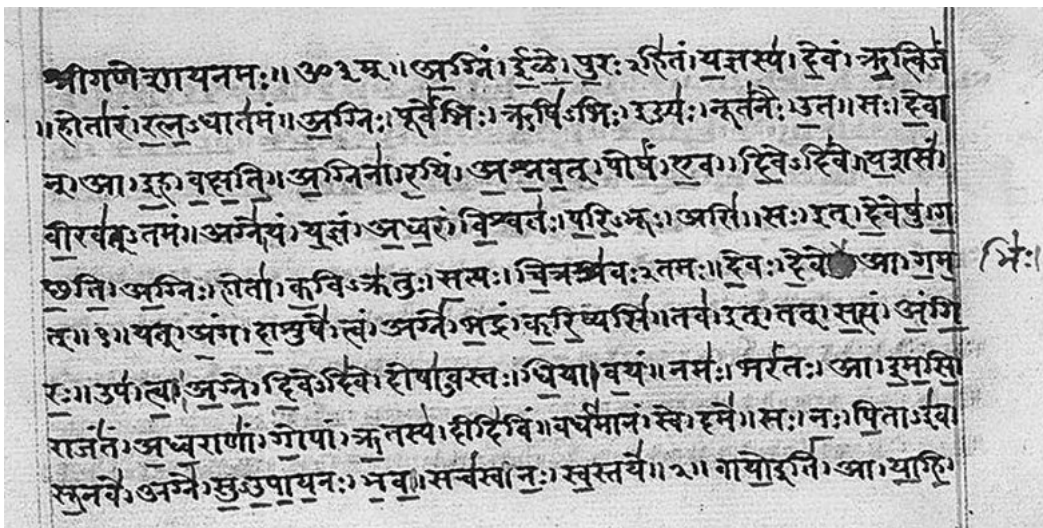 श्रीगणेशायनमः॥ॐ३म्॥अ॒ग्निं।ई॒ळे॒।पु॒रः२हि॑तं।य॒ज्ञस्य॑।दे॒वं।ऋ॒त्विजं॑
॥होता॑रं।र॒त्न॒ऽधात॑मं॥अ॒ग्निः।पूर्वे॑भिः।ऋषि॑ऽभिः।ईड्यः॑।नूत॑नैः।उ॒त॥सः।दे॒वा
न्।आ।इ॒ह।व॒क्ष॒ति॒॥अ॒ग्निना॑।र॒यिं।अ॒श्न॒व॒त्।पोषं॑।ए॒व।दि॒वेऽदि॑वे॥य॒शसं॑
वी॒रव॑त्ऽतमं॥अग्ने॑।यं।य॒ज्ञं।अ॒ध्व॒रं।वि॒श्वतः॑।प॒रि॒ऽभूः।असि॑॥सः।इत्।दे॒वेषु॑।ग॒
छ॒ति॒।अ॒ग्निः।होता॑।क॒विऽक्र॑तुः।स॒त्यः।चि॒त्रश्र॑वः२तमः॥दे॒वः।दे॒वे आ।ग॒म॒
भिः॑।
त्॥१॥यत्।अं॒ग।दा॒शुषे॑।त्वं।अग्ने॑।भ॒द्रं।क॒रि॒ष्यसि॑॥तव॑।इत्।तत्।स॒त्यं।अं॒गि॒
रः॒॥उप॑।त्वा॒।अ॒ग्ने॒।दि॒वेऽदि॑वे।दोषा॑ऽवस्तः।धि॒या।व॒यं॥नमः॑।भर॑तः।आ।इ॒म॒सि॒
राजं॑तं।अ॒ध्व॒राणां॑।गो॒पां।ऋ॒तस्य॑।दीदि॑विं॥वर्ध॑मानं।स्वे।दमे॑॥सः।नः॒।पि॒ताऽइ॑व
सू॒नवे॑।अग्ने॑।सु॒ऽउ॒पा॒य॒नः।भ॒व॒॥सच॑स्व।नः॒।स्व॒स्तये॑॥२॥वायो॒इति॑।आ।या॒हि॒